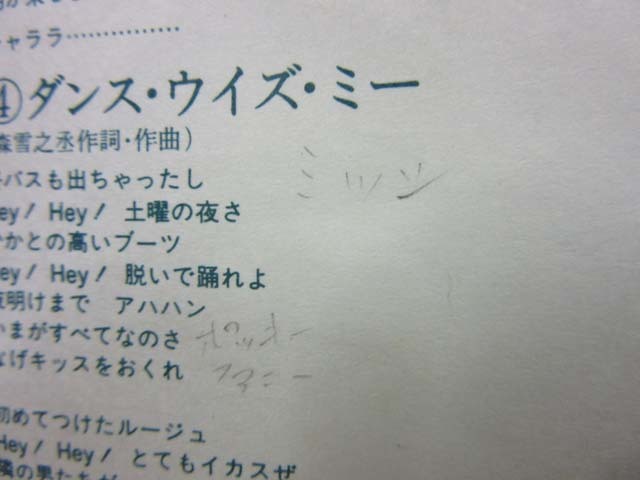 ャララ……………
④ダンス・ウイズ・ミー
森雪之丞作詞・作曲）
ミッツ
バスも出ちゃったし
ey！ Hey！ 土曜の夜さ
かとの高いブーツ
ey！ Hey！ 脱いで踊れよ
夜明けまで アハハン
まがすべてなのさ ポッキー
なげキッスをおくれ ファニー
初めてつけたルージュ
Hey！ Hey！ とてもイカスぜ
隣の男たちが